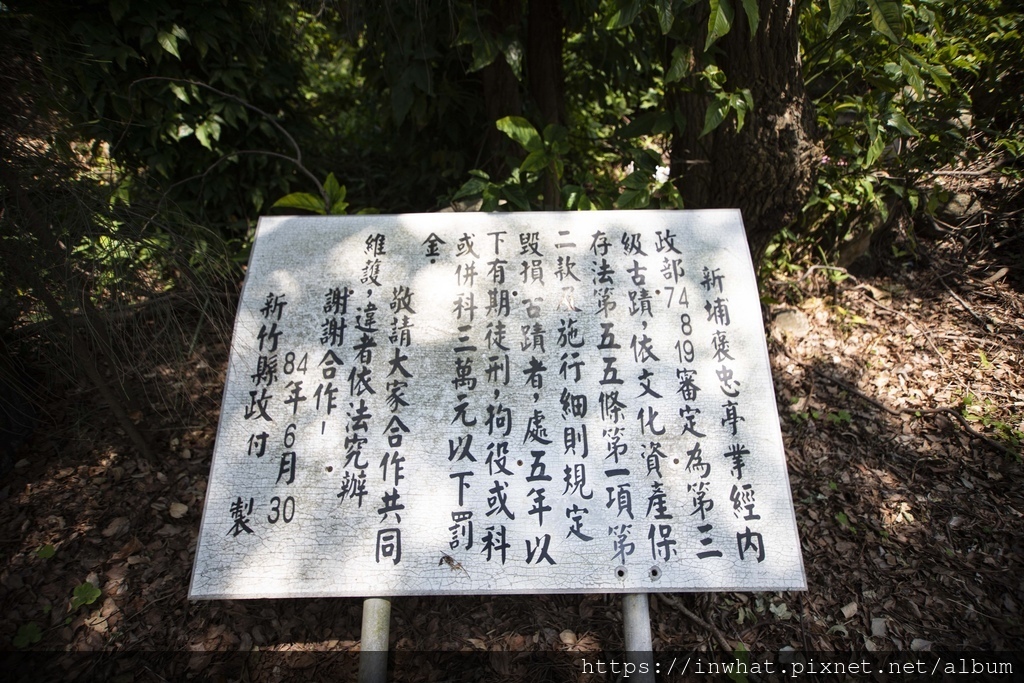 新埔褒忠亭業經內
政部74 8 19審定為第三
級古蹟，依文化資產保
存法第五五條第一項第
二款及施行細則規定
毀損古蹟者，處五年以
下有期徒刑，拘役或科
或併科三萬元以下罰
金。
敬請大家合作共同
維護，違者依法究辦
謝謝合作
84年6月30
新竹縣政付 製
https://inwhat.pixnet.net/album